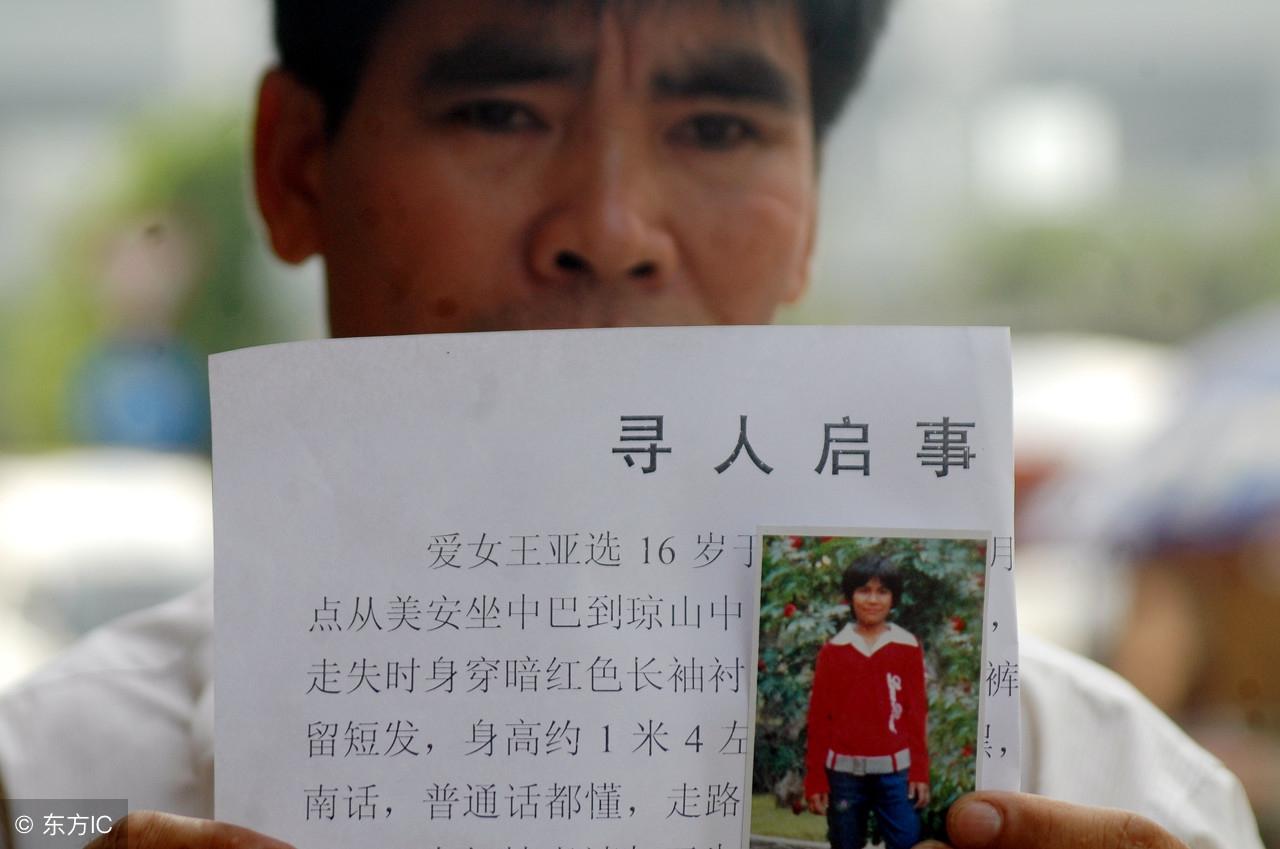 寻人启事
爱女王亚选 16 岁于 月
点从美安坐中巴到琼山中 ，
走失时身穿暗红色长袖衬 裤
留短发，身高约 1 米 4 左 ，
南话，普通话都懂，走路
© 东方IC